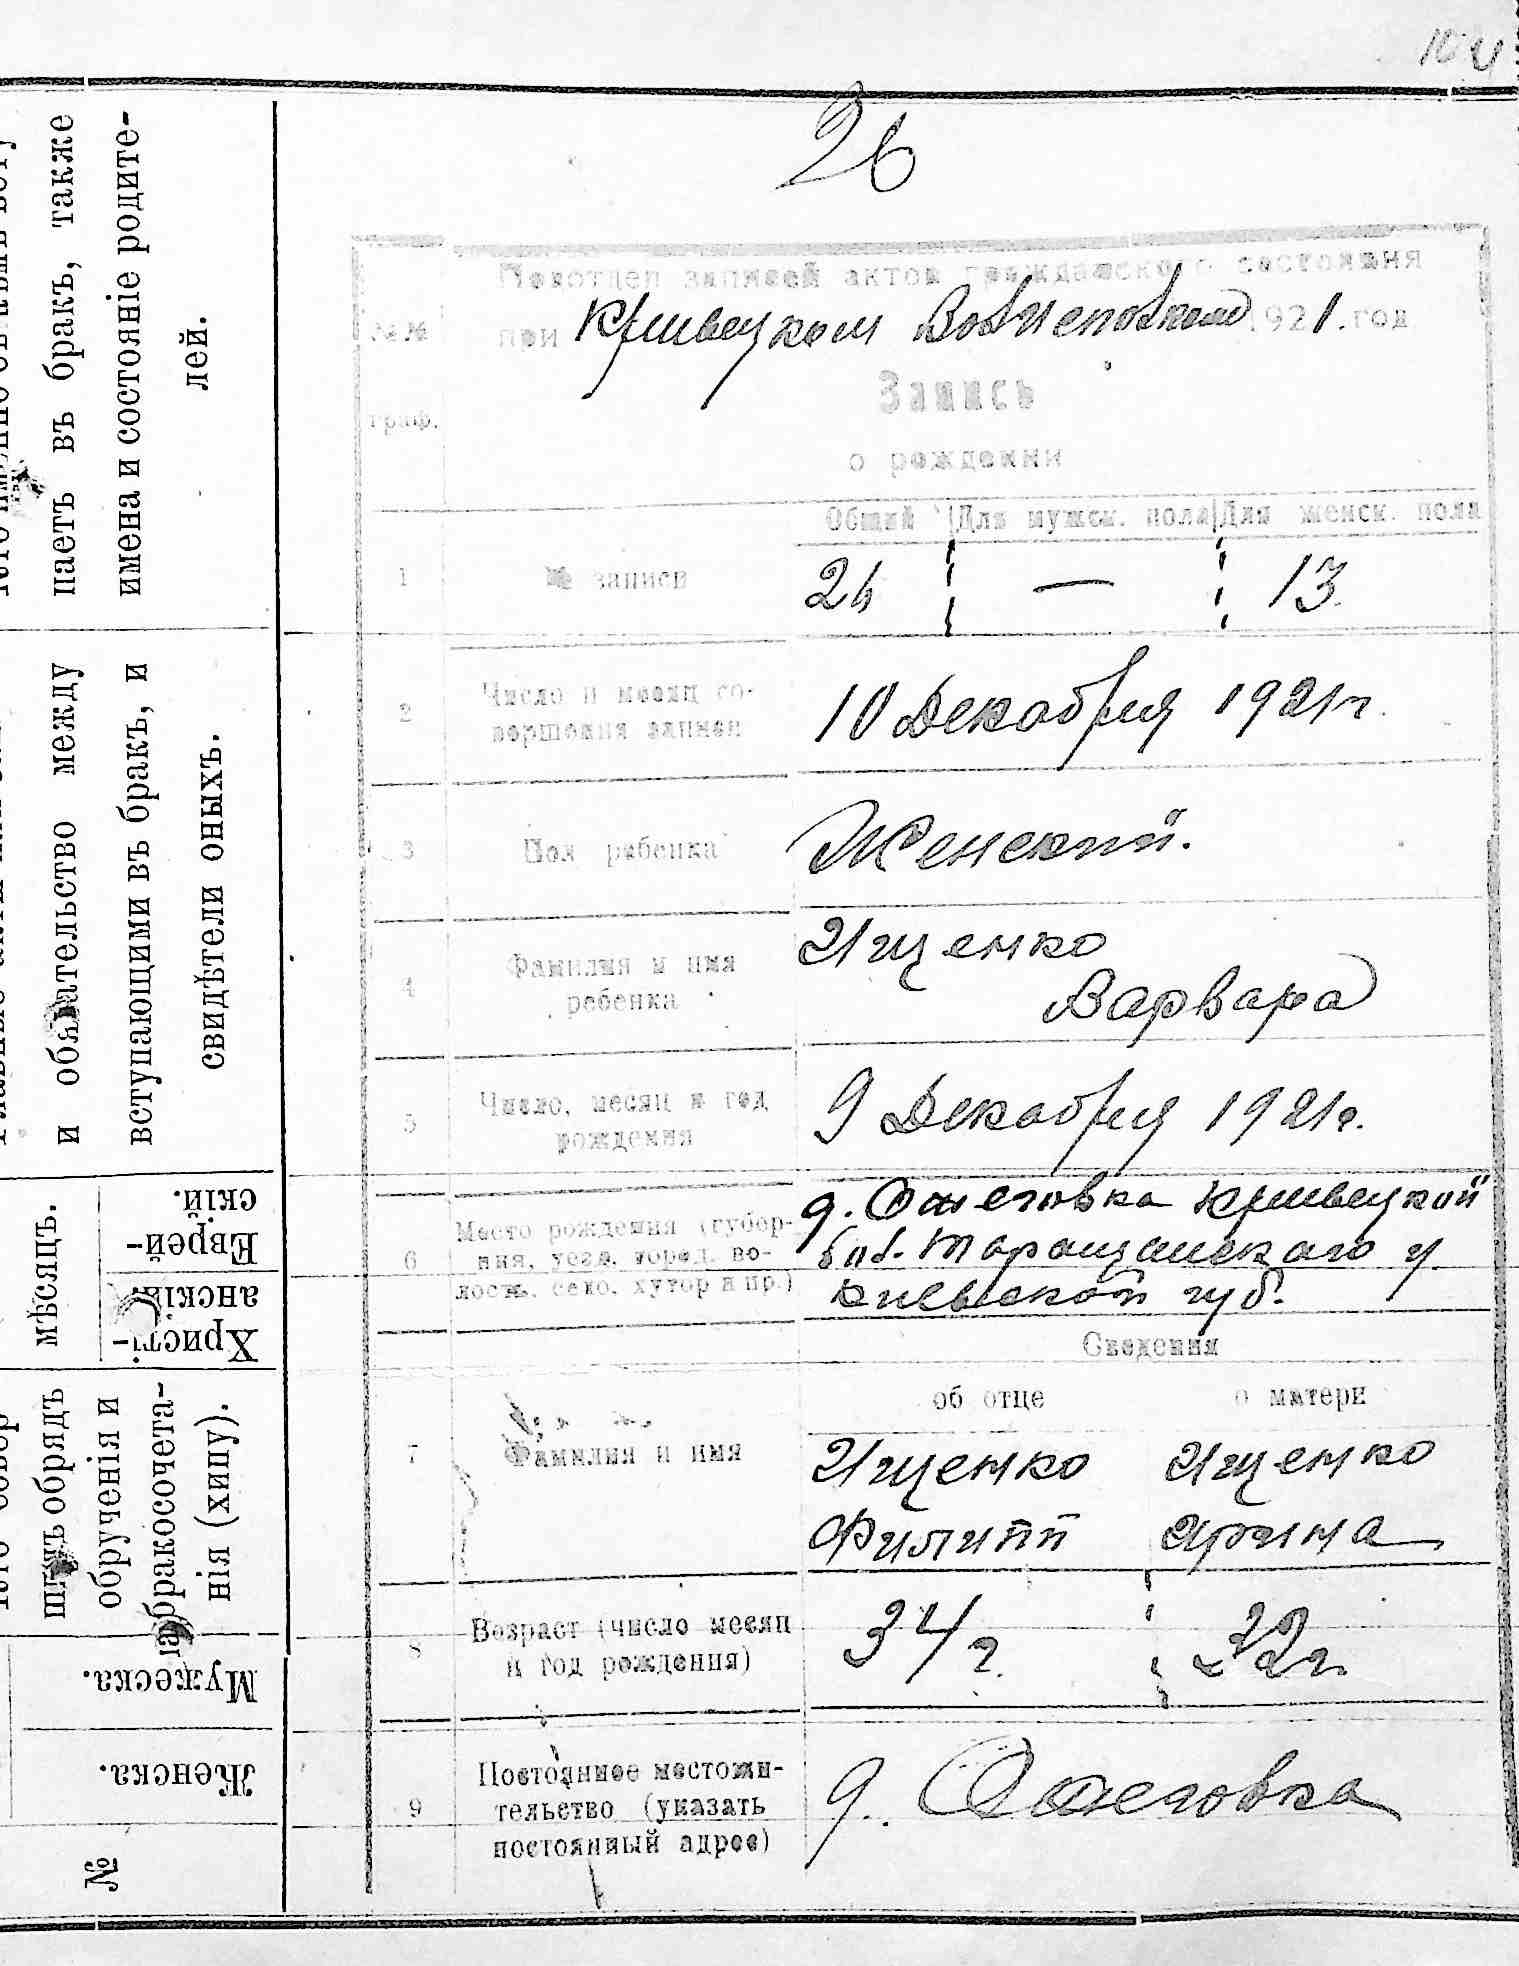 26
Подотдел записей актов гражданского состояния
№№ при Кривецком Волисполкоме 1921. год
граф.
Запись
о рождении
Общий Для мужск. пола Для женск. пола
1 № записи 26 — 13.
2 Число и месяц со-
вершения записи 10 Декабря 1921 г.
3 Пол ребенка Женский.
4 Фамилия и имя
ребенка Ищенко
Варвара
5 Число, месяц и год
рождения 9 Декабря 1921 г.
6 Место рождения (губер-
ния, уезд, город, во-
лость, село, хутор и пр.)
д. Ожеговка Кривецкой
вол. Таращанского у.
Киевской губ.
Сведения
об отце о матери
7 Фамилия и имя
Ищенко Ищенко
Филипп Ирина
8 Возраст (число месяц
и год рождения) 34 г. 32 г.
9 Постоянное местожи-
тельство (указать
постоянный адрес) д. Ожеговка
паетъ въ бракъ, также
имена и состояніе родите-
лей.
и обязательство между
вступающими въ бракъ, и
свидѣтели оныхъ.
мѣсяцъ.
Еврей-
скій.
Христі-
анскій.
шилъ обрядъ
обрученія и
бракосочета-
нія (хипу).
Мужеска.
Женска.
№